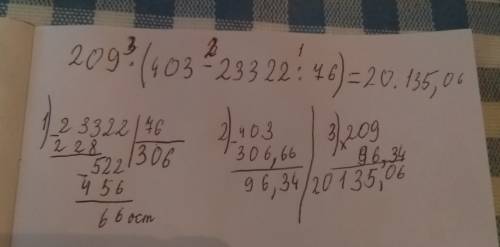 3 2 1
209 · (403 - 23322 : 76) = 20.135,06
1) 23322 | 76
- 228 306
- 522
456
66 ост
2) - 403
306,66
96,34
3) x 209
96,34
20135,06